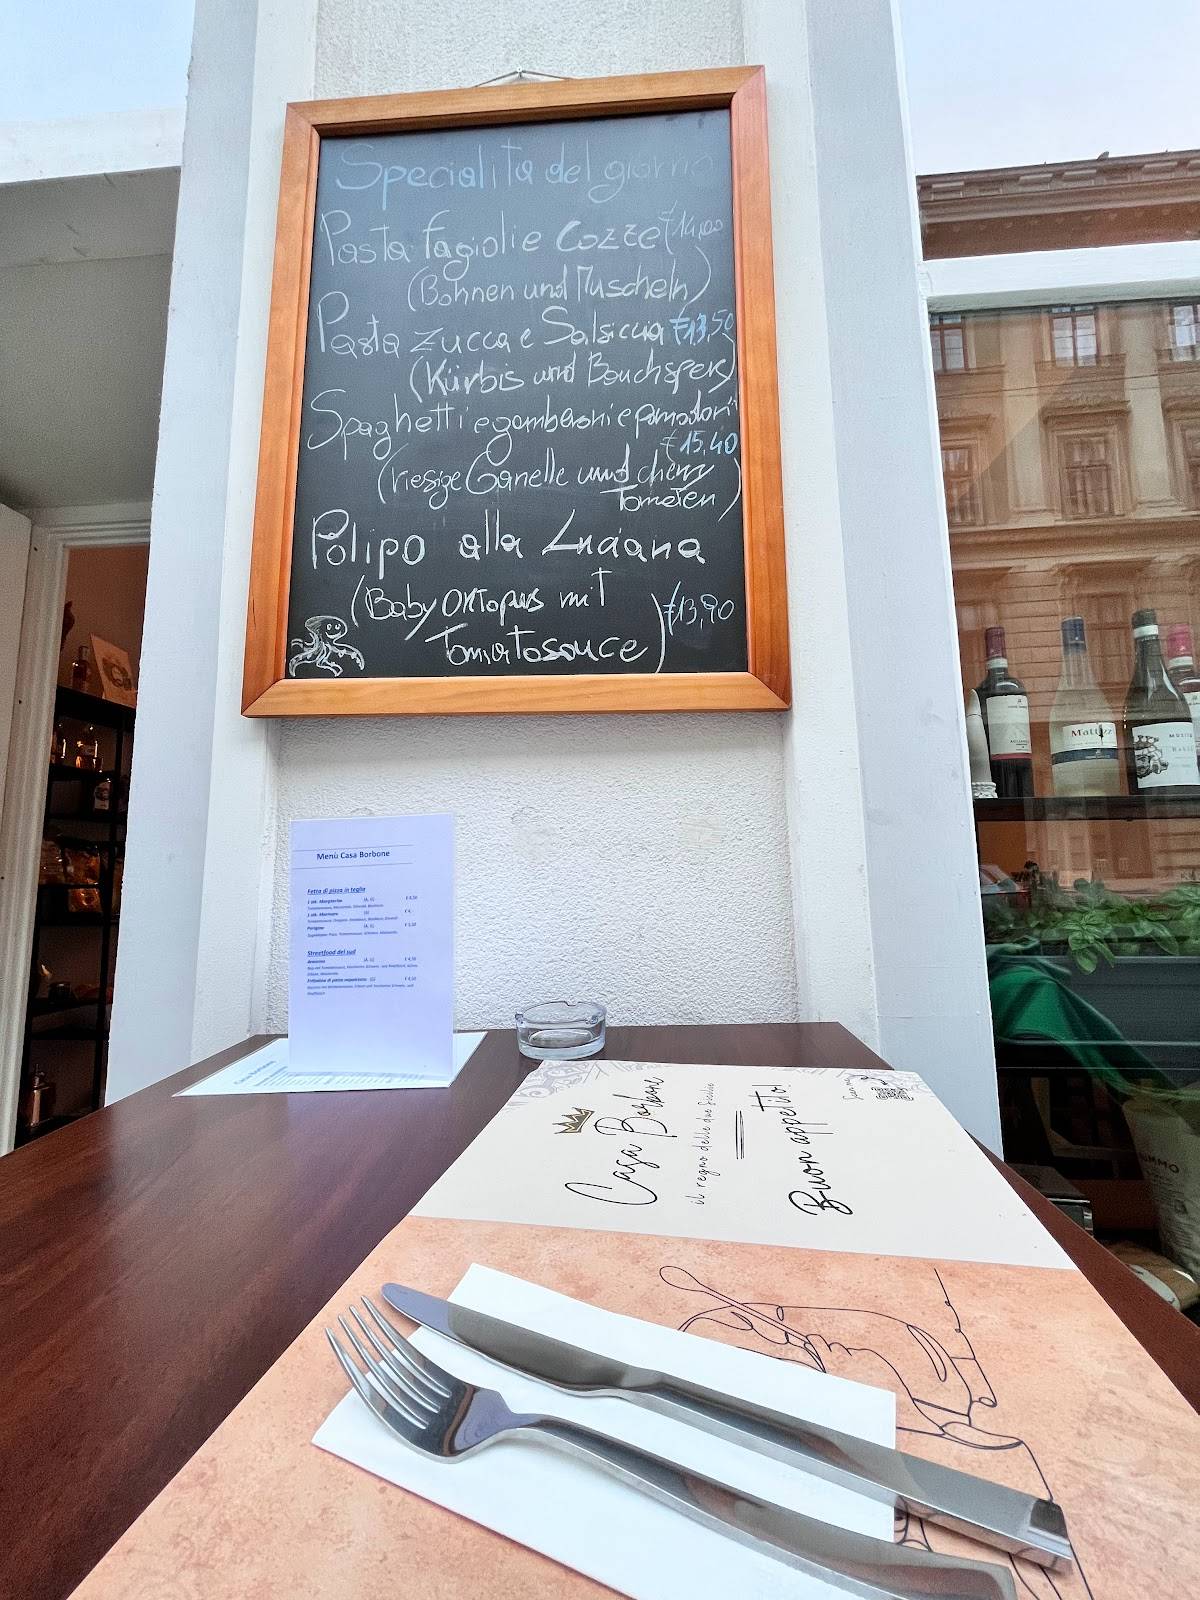 Specialità del giorno
Pasta fagioli e Cozze €14,00
(Bohnen und Muscheln)
Pasta zucca e Salsiccia €13,50
(Kürbis und Bauchspeck)
Spaghetti e gamberoni e pomodori
€15,40
(riesige Garnelle und cherry
Tomaten)
Polipo alla Luciana
(Baby Oktopus mit
Tomatosauce) €13,90
Menù Casa Borbone
Fetta di pizza in teglia
1 stk. Margherita
€ 4,50
1 stk. Marinara
€ 4,
Parigina
€ 5,50
Streetfood del sud
Arancino
€ 4,50
Frittatina di pasta napoletana
€ 4,50
Casa Borbone
Casa Borbone
il regno delle due Sicilie
Buon appetito!
Scan me
Matizz